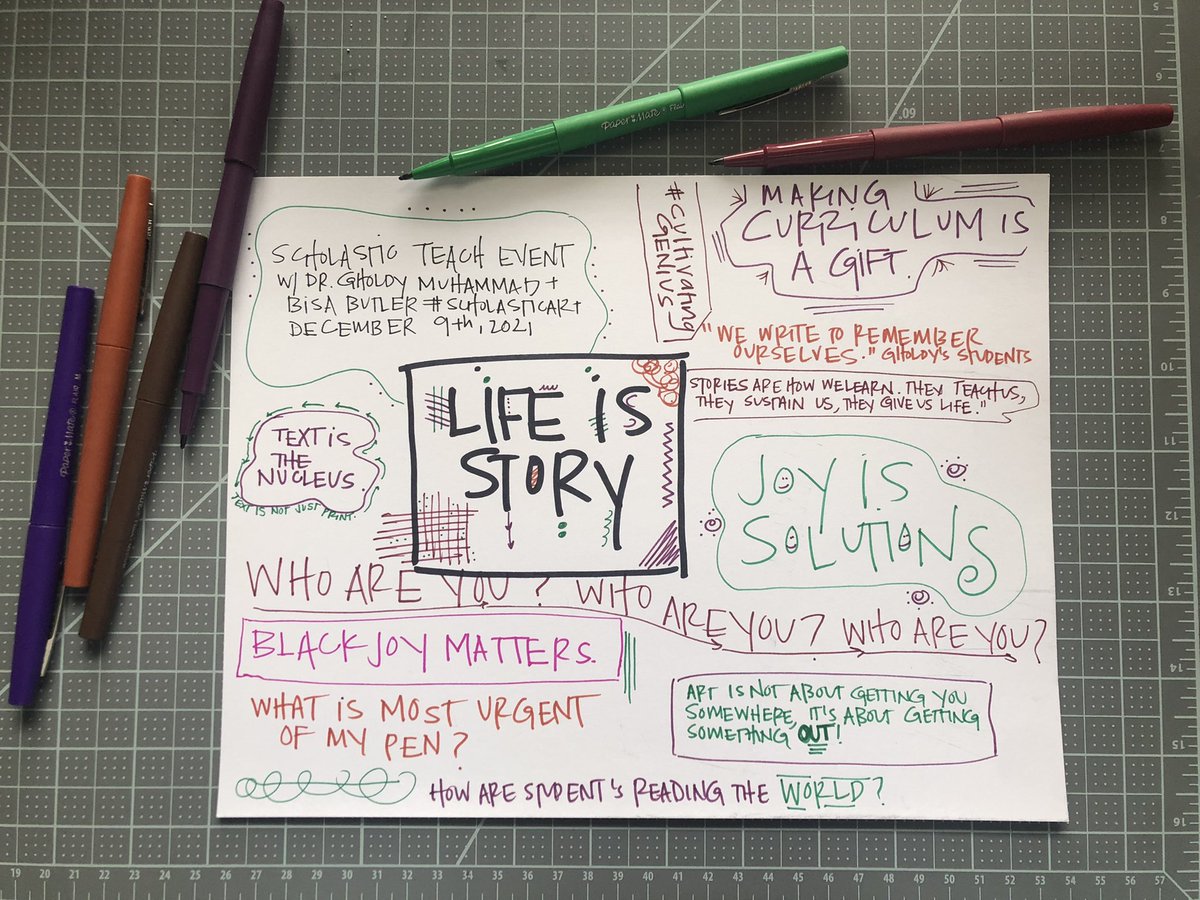 Paper Mate Flair
Paper Mate Flair M
SCHOLASTIC TEACH EVENT
W/ DR. GHOLDY MUHAMMAD +
BISA BUTLER #SCHOLASTICART
DECEMBER 9th, 2021
#CULTIVATING
GENIUS
MAKING
CURRICULUM IS
A GIFT.
"WE WRITE TO REMEMBER
OURSELVES." GHOLDY'S STUDENTS
STORIES ARE HOW WE LEARN. THEY TEACH US,
THEY SUSTAIN US, THEY GIVE US LIFE."
LIFE IS
STORY
TEXT IS
THE
NUCLEUS
TEXT IS NOT JUST PRINT.
JOY IS
SOLUTIONS
WHO ARE YOU? WHO ARE YOU? WHO ARE YOU?
BLACK JOY MATTERS.
WHAT IS MOST URGENT
OF MY PEN?
ART IS NOT ABOUT GETTING YOU
SOMEWHERE, IT'S ABOUT GETTING
SOMETHING OUT!
HOW ARE STUDENT'S READING THE WORLD?
5
6
09
8
11
12
13
14
15
16
19 20 21 22 23 24 25 26 27 28 29 30 31 32 33 34 35 36 37 38 39 40 41 42 43 44 45 46 47 48 49 50 51 52 53 54 55 56 57